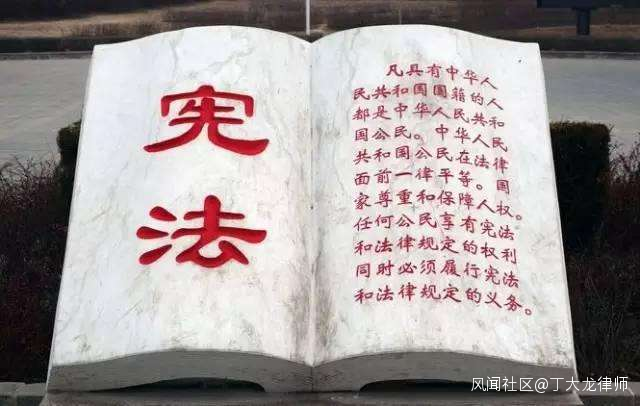 宪
法
凡具有中华人
民共和国国籍的人
都是中华人民共和
国公民。中华人民
共和国公民在法律
面前一律平等。国
家尊重和保障人权。
任何公民享有宪法
和法律规定的权利
同时必须履行宪法
和法律规定的义务。
风闻社区@丁大龙律师